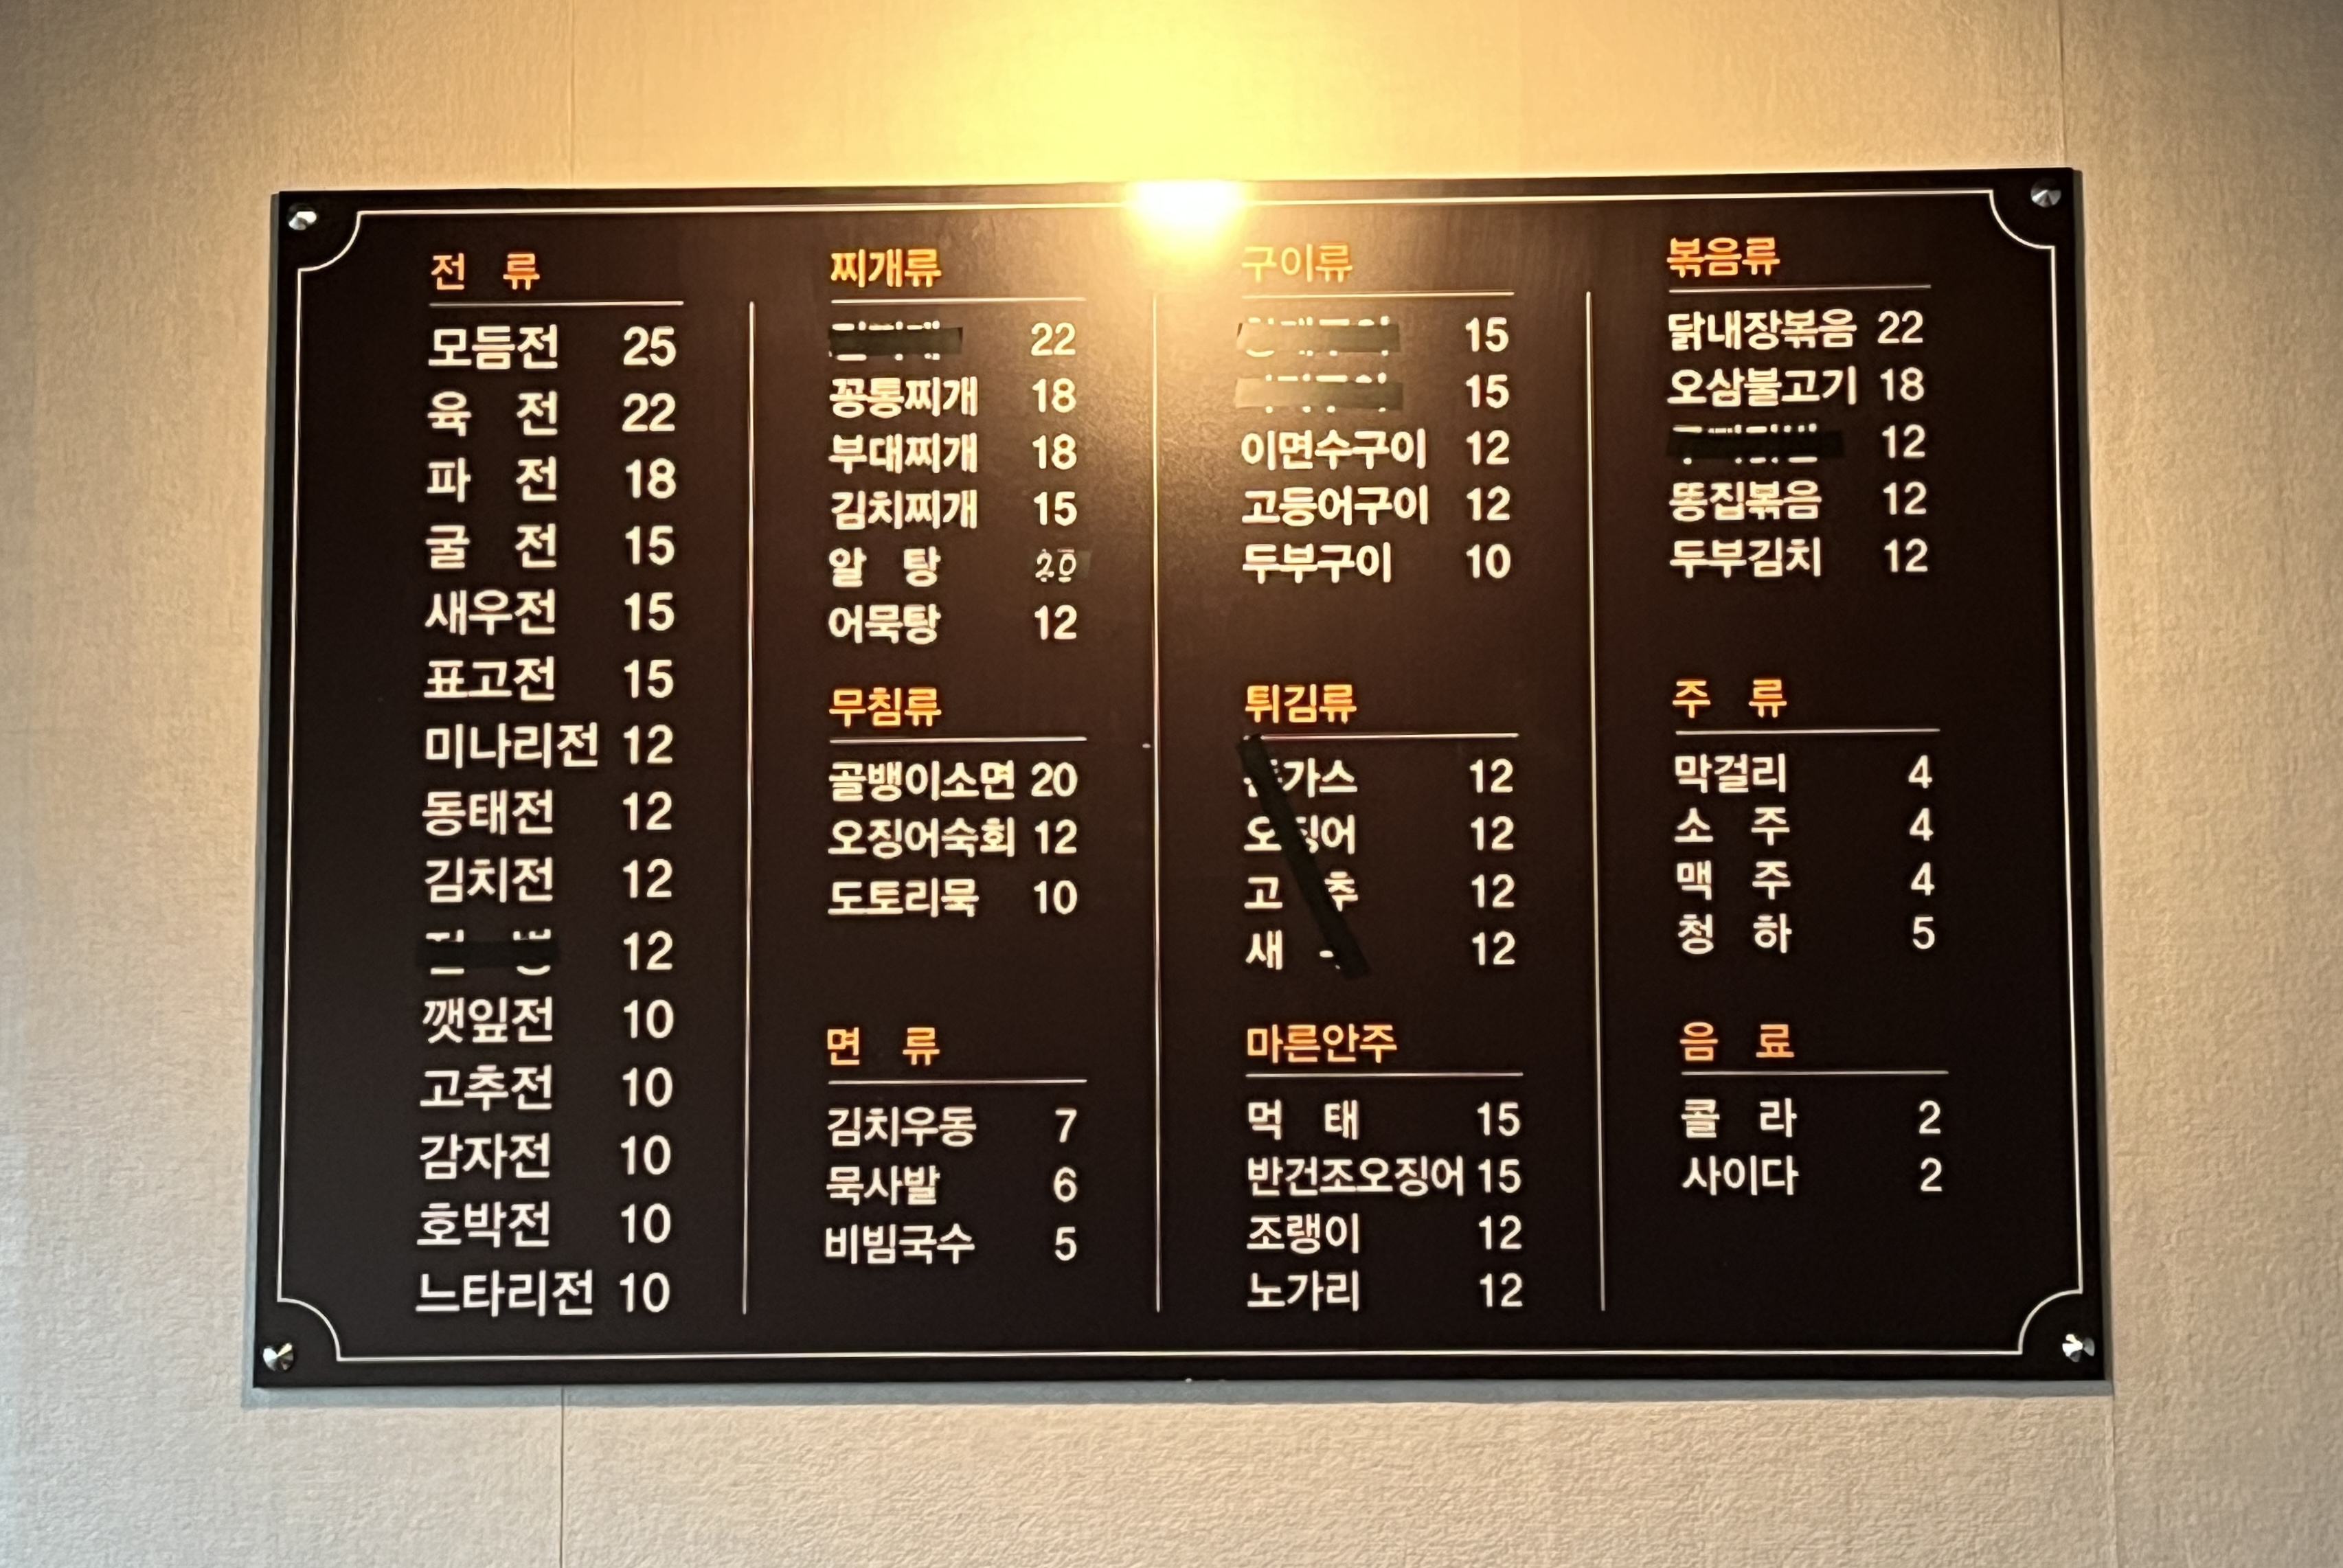 전 류
모듬전 25
육 전 22
파 전 18
굴 전 15
새우전 15
표고전 15
미나리전 12
동태전 12
김치전 12
12
깻잎전 10
고추전 10
감자전 10
호박전 10
느타리전 10
찌개류
22
꽁통찌개 18
부대찌개 18
김치찌개 15
알 탕 20
어묵탕 12
무침류
골뱅이소면 20
오징어숙회 12
도토리묵 10
면 류
김치우동 7
묵사발 6
비빔국수 5
구이류
15
15
이면수구이 12
고등어구이 12
두부구이 10
튀김류
12
오징어 12
고 추 12
새 12
마른안주
먹 태 15
반건조오징어 15
조랭이 12
노가리 12
볶음류
닭내장볶음 22
오삼불고기 18
12
똥집볶음 12
두부김치 12
주 류
막걸리 4
소 주 4
맥 주 4
청 하 5
음 료
콜 라 2
사이다 2